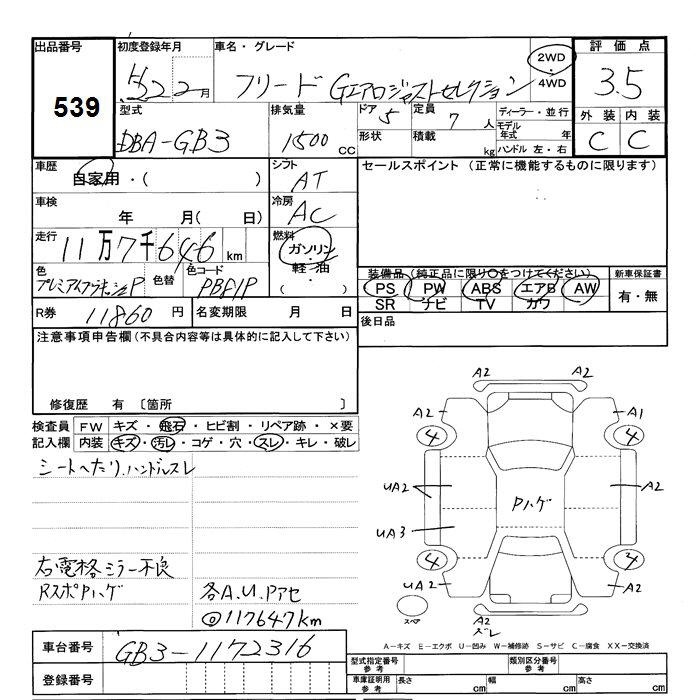 出品番号 初度登録年月 車名・グレード 評価点
539
22 月 フリード Gエアロジャストセレクション 2WD ・ 4WD 3.5
型式 排気量 ドア 定員 ディーラー・並行 外装 内装
DBA-GB3 1500 CC 5 7 人 モデル年式 年 C C
形状 積載 kg ハンドル 左・右
車歴 シフト セールスポイント (正常に機能するものに限ります)
自家用・( ) AT
車検 冷房
年 月( 日) AC
走行 燃料
11万7千646 km ガソリン・軽油・( )
色 色替 色コード 装備品 (純正品に限り○をつけてください) 新車保証書
PBF1P PS PW ABS エアB AW 有・無
SR ナビ TV カワ
R券 11860 円 名変期限 月 日 後日品
注意事項申告欄(不具合内容等は具体的に記入して下さい)
修復歴 有 〔箇所 〕
検査員 FW キズ・飛石・ヒビ割・リペア跡・×要
記入欄 内装 キズ・汚レ・コゲ・穴・スレ・キレ・破レ
シートへたり、ハンドルスレ
右電格ミラー不良
RスポPハゲ 各A.U.Pアセ
@117647km
A2 A2
A2 A1
4 4
UA2 A2
Pハゲ
UA3
4 3
UA2 A2
スペア A2 ズレ
A-キズ E-エクボ U-凹み W-補修跡 S-サビ C-腐食 XX-交換済
車台番号 GB3-1172316
型式指定番号 参考 類別区分番号 参考
登録番号 車庫証明用 参考 長さ cm 幅 cm 高さ cm